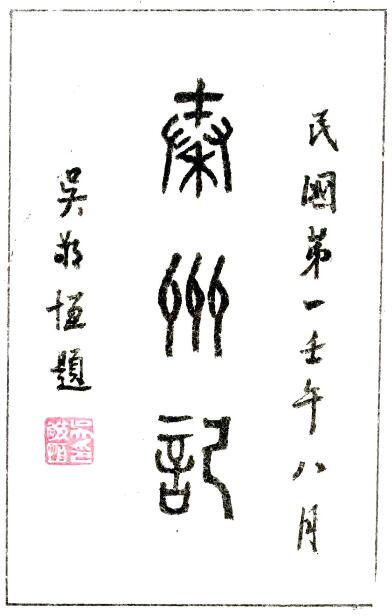 民國第一壬午八月
秦州記
吳敬恆題